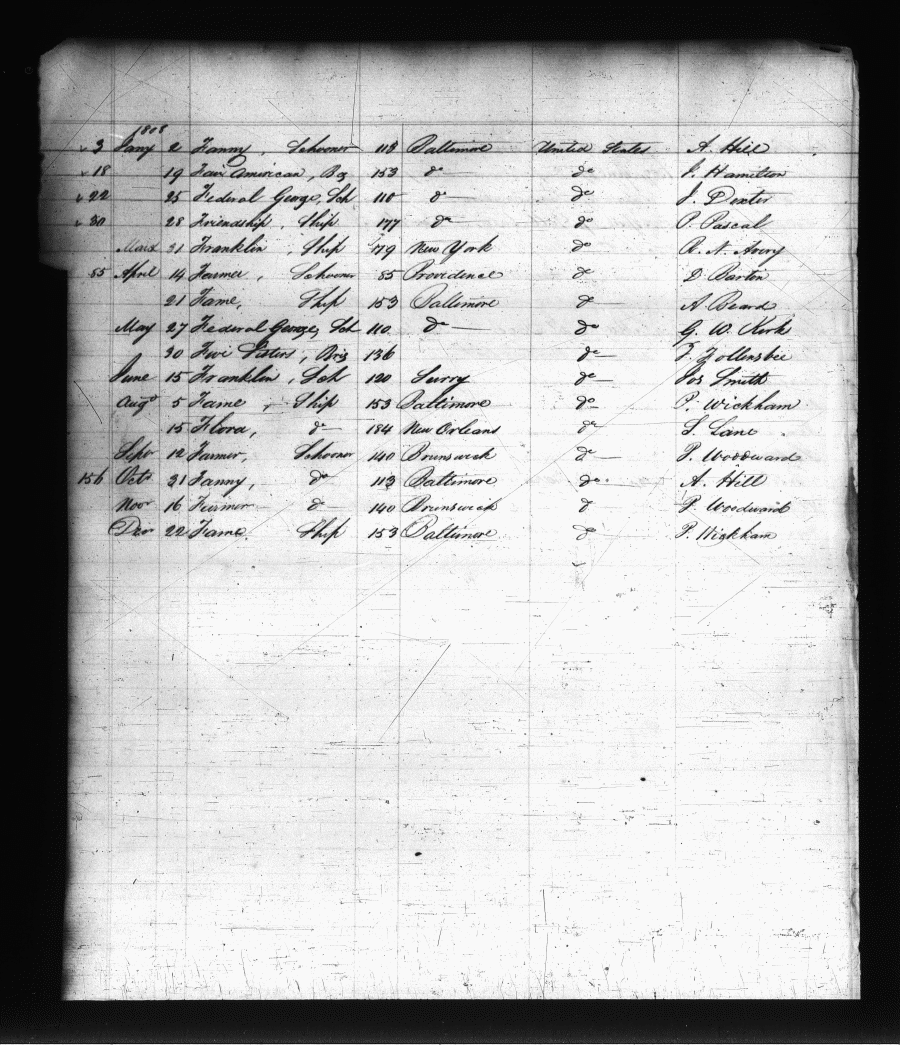 1808
3 Jany 2 Fanny, Schooner 113 Baltimore United States A. Hill
18 19 Fair American, Bg 153 do do J. Hamilton
22 25 Federal George, Sch 110 do do J. Dexter
30 28 Friendship, Ship 177 do do P. Pascal
31 Franklin, Ship 179 New York do R. N. Avery
85 April 14 Farmer, Schooner 85 Providence do D Barton
21 Fame, Ship 153 Baltimore do A Beard
May 27 Federal George, Sch 110 do do G. W. Kirk
30 Sisters, Brig 136 do T. Follinsbie
June 15 Franklin, Sch 120 Surry do Jos Smith
Augo 5 Fame, Ship 153 Baltimore do P. Wickham
15 Flora, do 184 New Orleans do S. Lane
Sepr 12 Farmer, Schooner 140 Brunswick do P. Woodward
156 Octr 31 Fanny, do 113 Baltimore do A. Hill
Novr 16 Farmer do 140 Brunswick do P. Woodward
Decr 22 Fame. Ship 153 Baltimore do P. Wickham